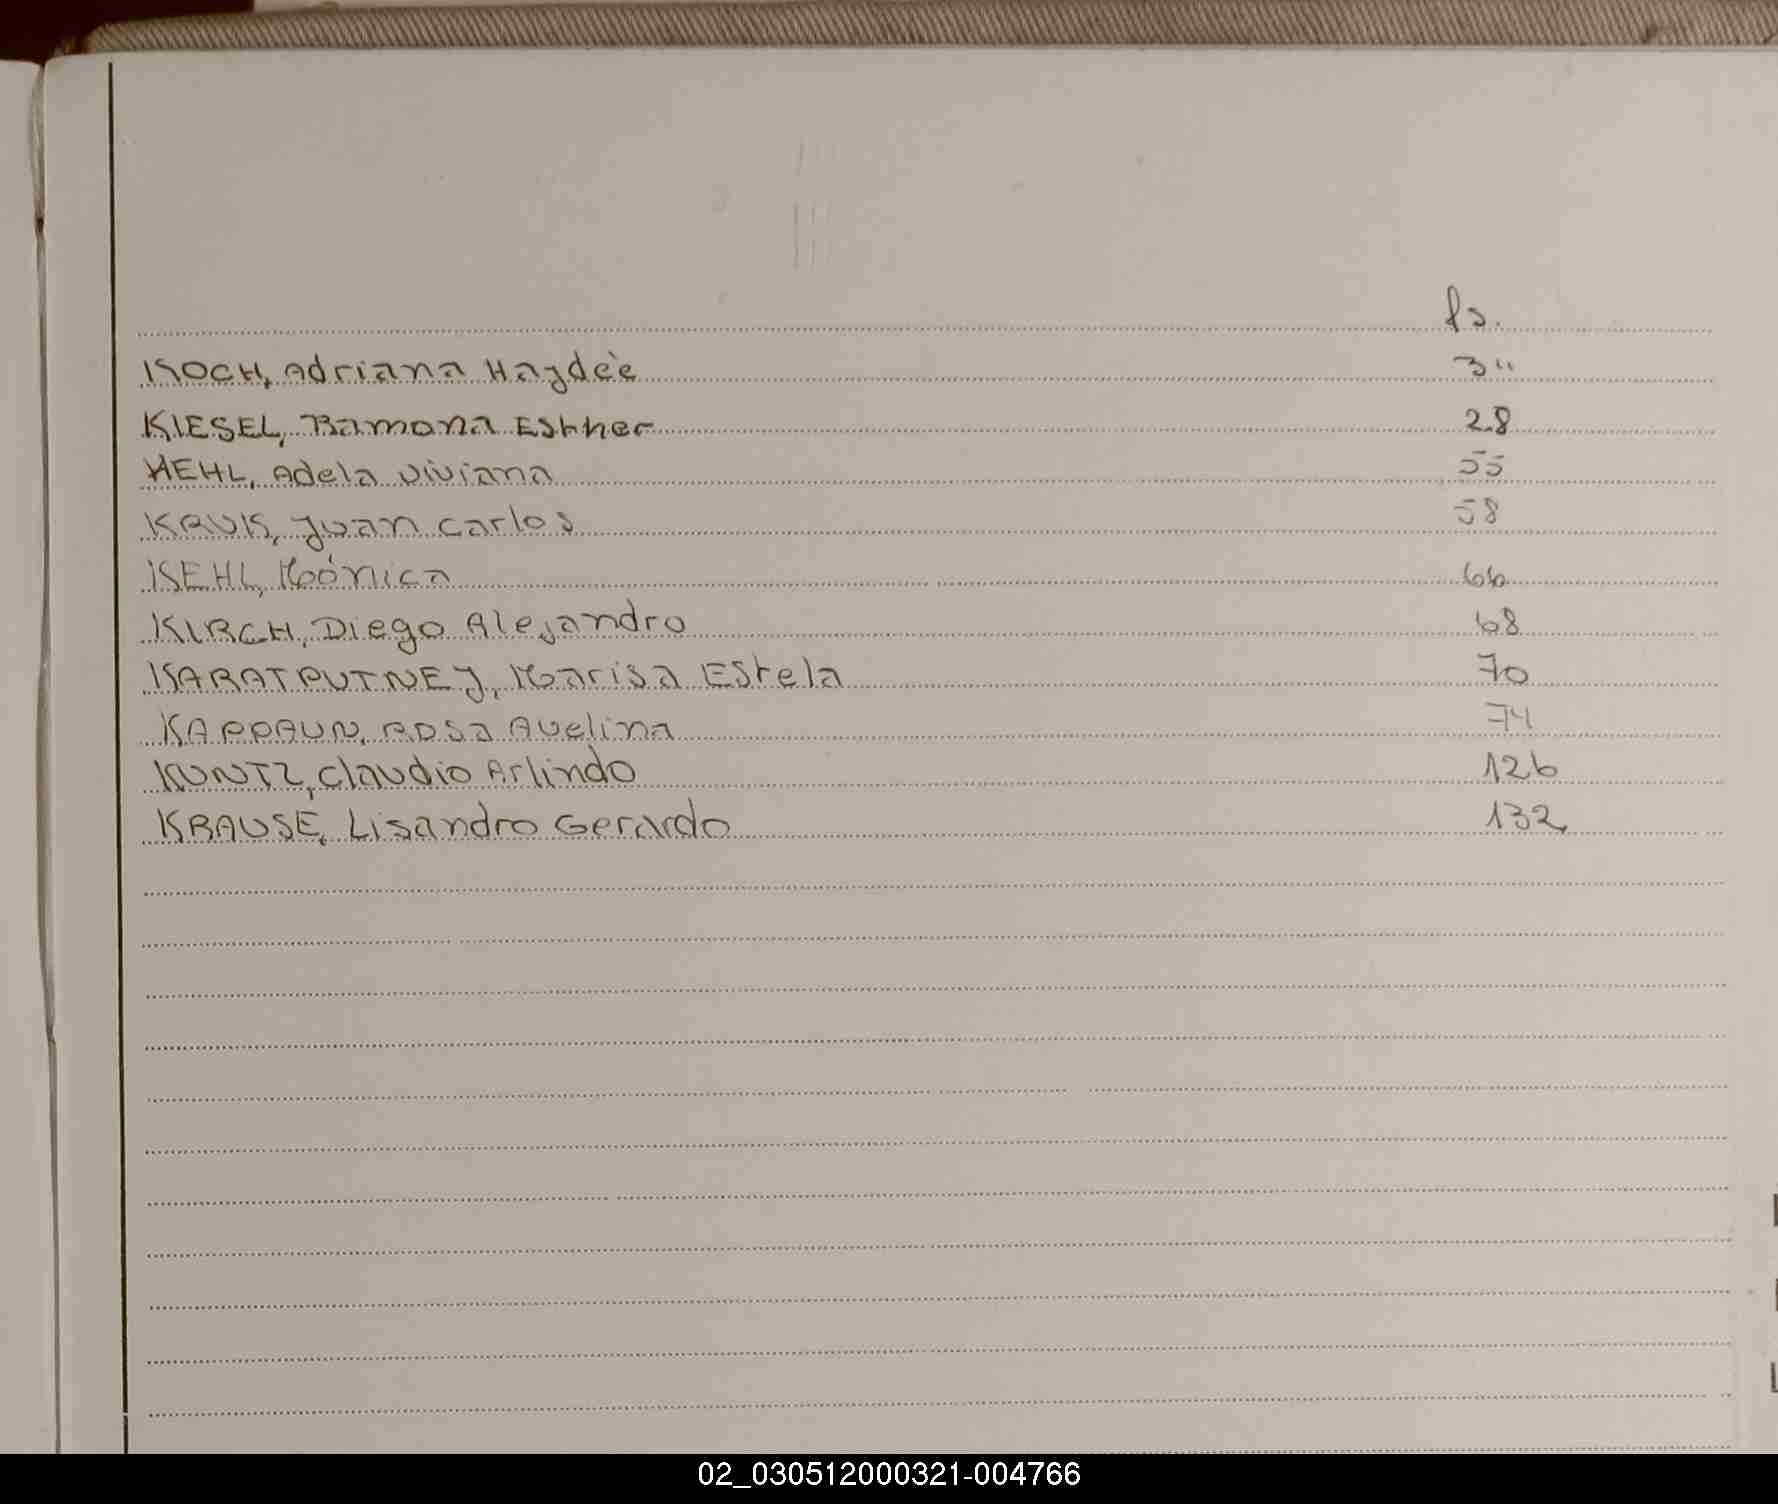 fs.
KOCH, Adriana Haydeè 3"
KIESEL, Ramona Esther 28
KEHL, Adela Viviana 55
KRUK, Juan Carlos 58
KEHL, Mónica 66
KIRCH, Diego Alejandro 68
KARATPUTNEY, Marisa Estela 70
KAPPAUN, Rosa Avelina 74
KUNTZ, Claudio Arlindo 126
KRAUSE, Lisandro Gerardo 132
02_030512000321-004766